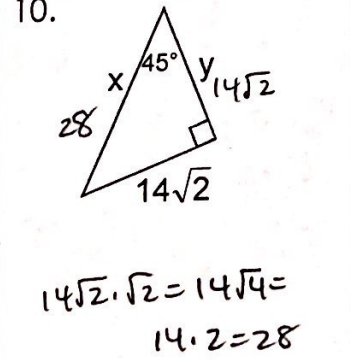 10.
45°
x
y
14√2
28
14√2
14√2·√2=14√4=
14·2=28